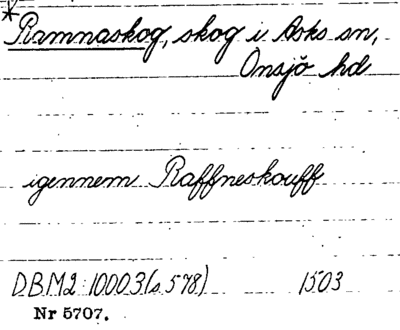 *Ramnaskog, skog i Asks sn,
Onsjö hd
igennem Raffneskouff
DBM2:10003(s.578) 1503
Nr 5707.